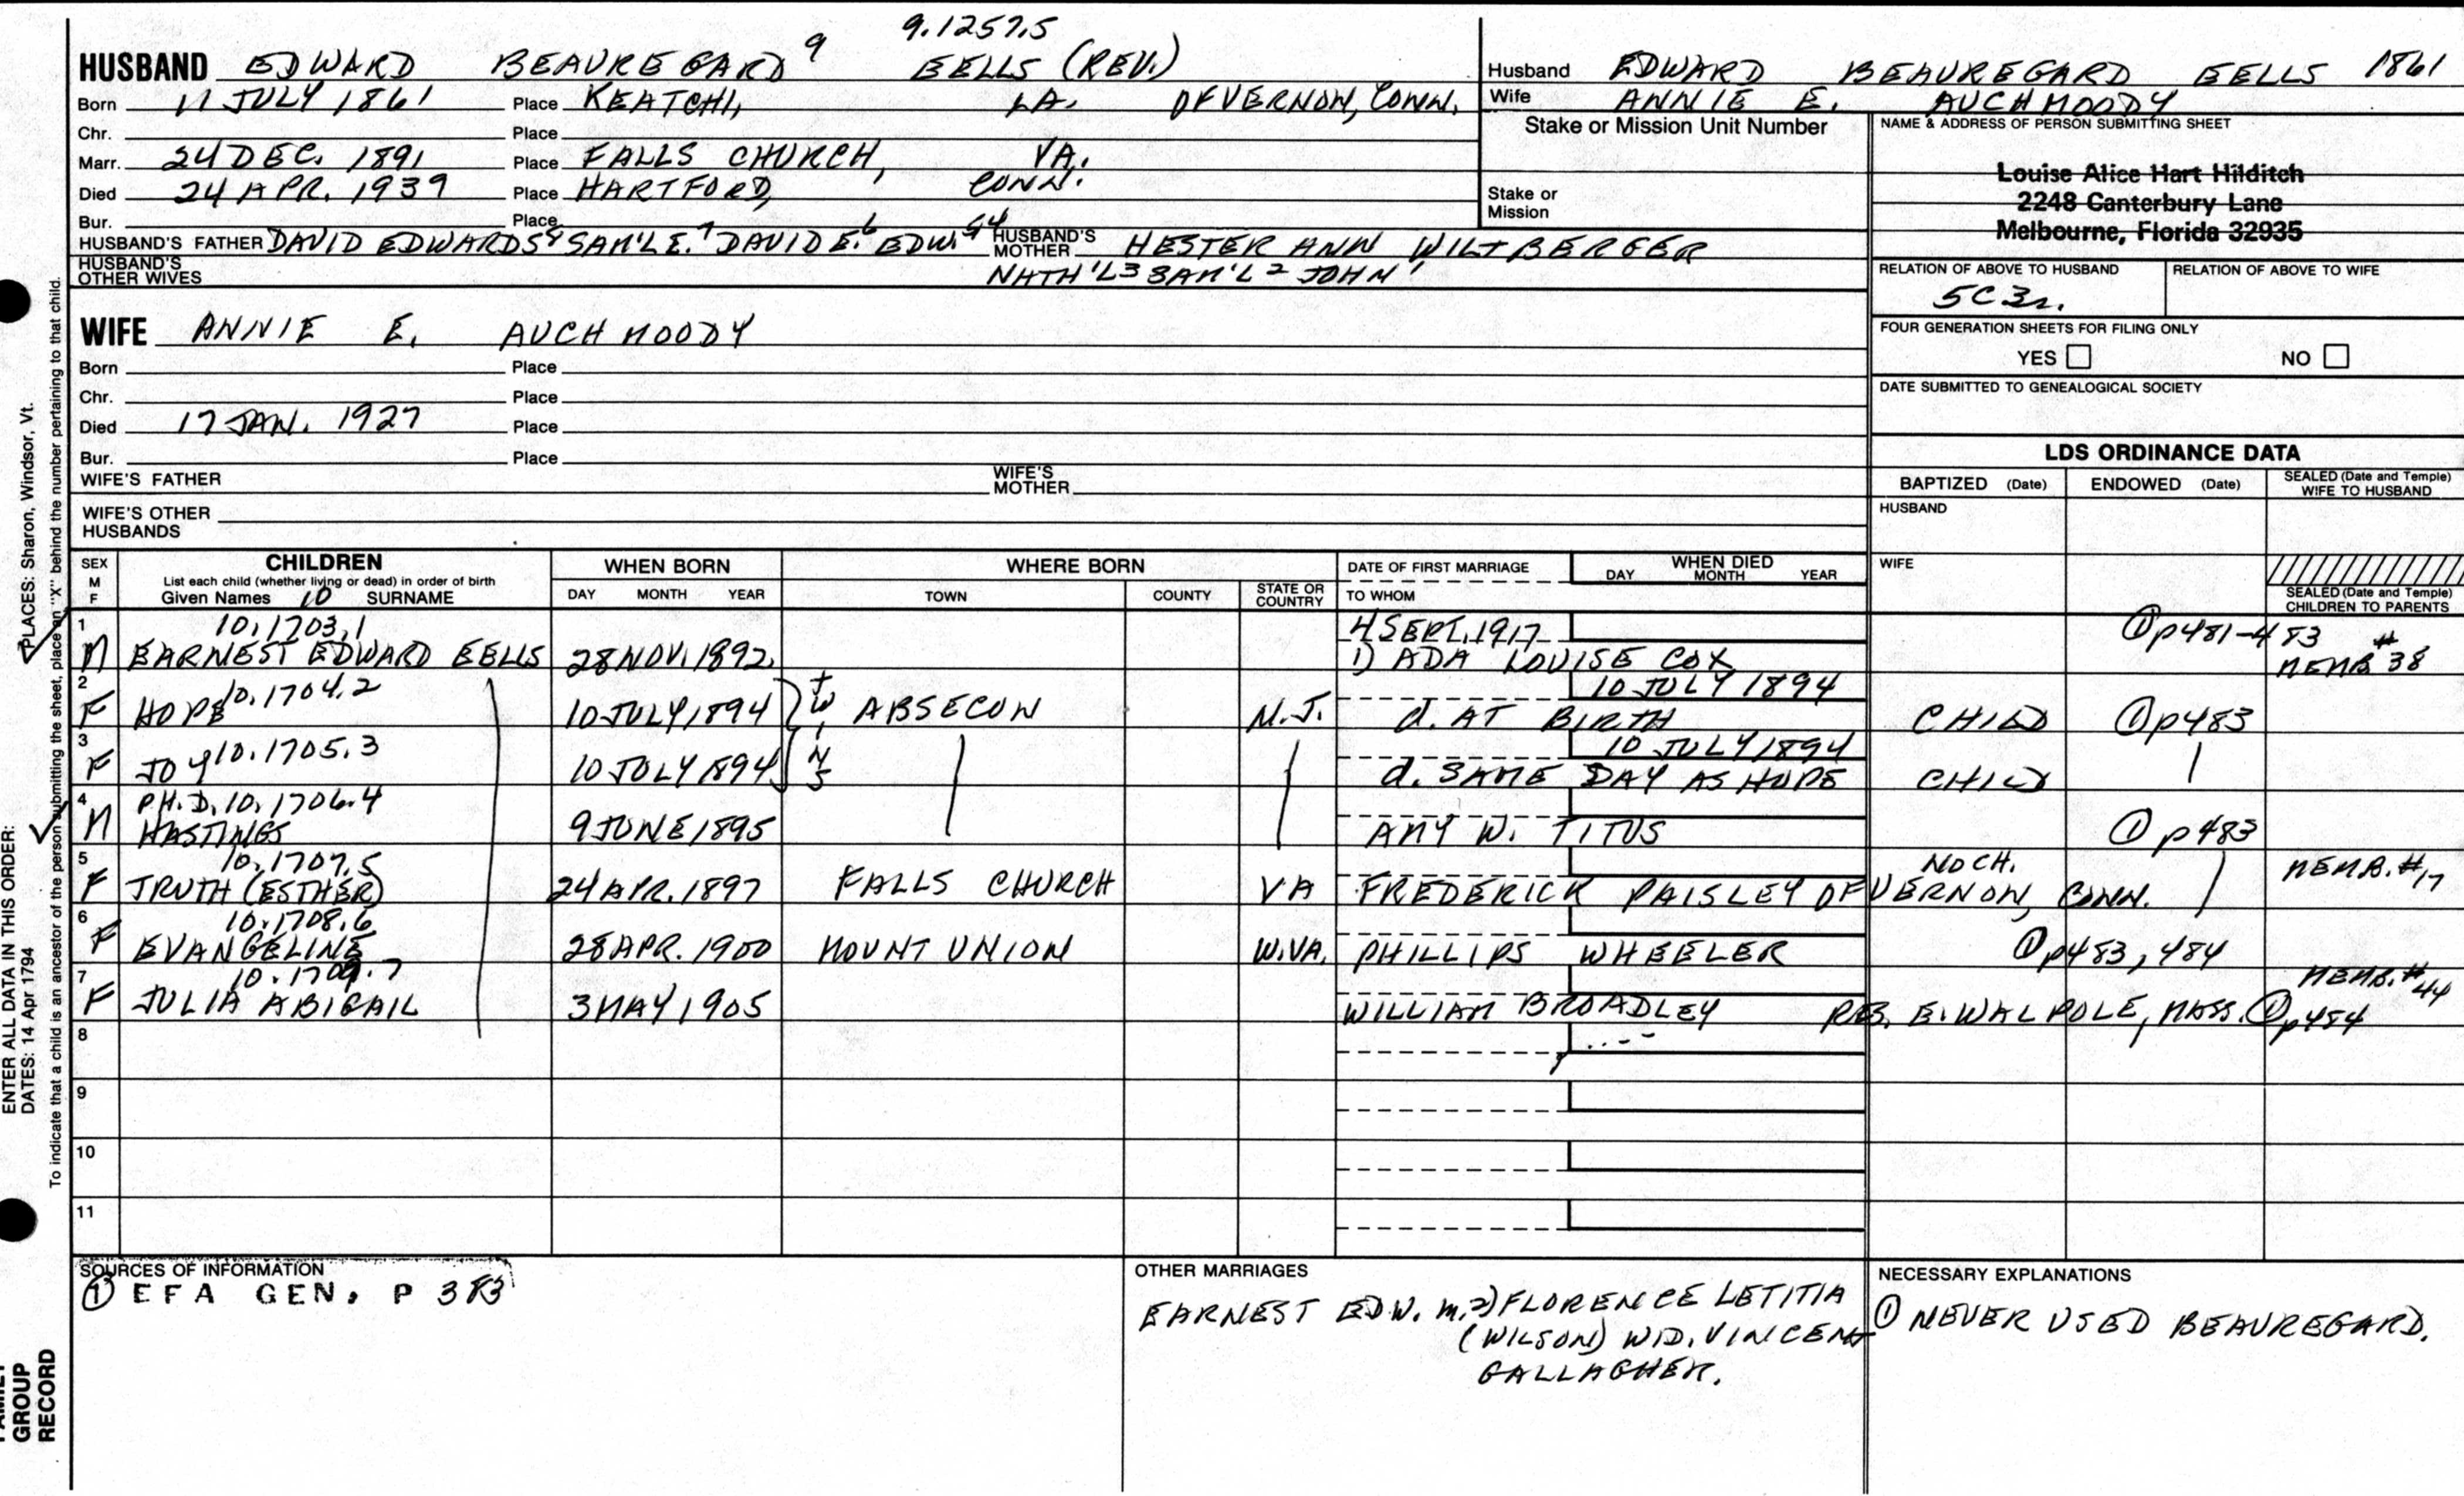 9.1257.5
HUSBAND EDWARD BEAUREGARD 9 EELLS (REV.)
Born 11 JULY 1861 Place KEATCHI, LA. OF VERNON, CONN.
Chr. Place
Marr. 24 DEC. 1891 Place FALLS CHURCH, VA.
Died 24 APR. 1939 Place HARTFORD, CONN.
Bur. Place
HUSBAND'S FATHER DAVID EDWARDS8 SAM'L E.7 DAVID E.6 EDW.54 HUSBAND'S MOTHER HESTER ANN WILTBERGER
HUSBAND'S OTHER WIVES NATH'L3 SAM'L2 JOHN1
Husband EDWARD BEAUREGARD EELLS 1861
Wife ANNIE E. AUCHMOODY
Stake or Mission Unit Number
Stake or Mission
NAME & ADDRESS OF PERSON SUBMITTING SHEET
Louise Alice Hart Hilditch
2248 Canterbury Lane
Melbourne, Florida 32935
RELATION OF ABOVE TO HUSBAND RELATION OF ABOVE TO WIFE
5C3r.
FOUR GENERATION SHEETS FOR FILING ONLY
YES NO
DATE SUBMITTED TO GENEALOGICAL SOCIETY
WIFE ANNIE E. AUCHMOODY
Born Place
Chr. Place
Died 17 JAN. 1927 Place
Bur. Place
WIFE'S FATHER WIFE'S MOTHER
WIFE'S OTHER HUSBANDS
LDS ORDINANCE DATA
BAPTIZED (Date) ENDOWED (Date) SEALED (Date and Temple) WIFE TO HUSBAND
HUSBAND
WIFE
SEALED (Date and Temple) CHILDREN TO PARENTS
SEX M F
CHILDREN
List each child (whether living or dead) in order of birth
Given Names 10 SURNAME
WHEN BORN
DAY MONTH YEAR
WHERE BORN
TOWN COUNTY STATE OR COUNTRY
DATE OF FIRST MARRIAGE
TO WHOM
WHEN DIED
DAY MONTH YEAR
1 10.1703.1 4 SEPT. 1917 ① p481-483 #
M EARNEST EDWARD EELLS 28 NOV. 1892 1) ADA LOUISE COX MEMB 38
2 10.1704.2 10 JULY 1894
F HOPE 10 JULY 1894 TWINS ABSECON N.J. d. AT BIRTH CHILD ① p483
3 10.1705.3 10 JULY 1894
F JOY 10 JULY 1894 d. SAME DAY AS HOPE CHILD
4 PH.D. 10.1706.4
M HASTINGS 9 JUNE 1895 AMY W. TITUS ① p483
5 10.1707.5 NO CH. MEMB. #17
F TRUTH (ESTHER) 24 APR. 1897 FALLS CHURCH VA FREDERICK PAISLEY OF VERNON, CONN.
6 10.1708.6
F EVANGELINE 28 APR. 1900 MOUNT UNION W.VA. PHILLIPS WHEELER ① p483, 484
7 10.1709.7 MEMB. #44
F JULIA ABIGAIL 3 MAY 1905 WILLIAM BROADLEY RES. E. WALPOLE, MASS. ① p484
8
9
10
11
SOURCES OF INFORMATION
① EFA GEN. P 383
OTHER MARRIAGES
EARNEST EDW. m. 2) FLORENCE LETITIA
(WILSON) WID. VINCENT
GALLAGHER.
NECESSARY EXPLANATIONS
① NEVER USED BEAUREGARD.
PLACES: Sharon, Windsor, Vt.
To indicate that a child is an ancestor of the person submitting the sheet, place an "X" behind the number pertaining to that child.
ENTER ALL DATA IN THIS ORDER:
DATES: 14 Apr 1794
FAMILY
GROUP
RECORD